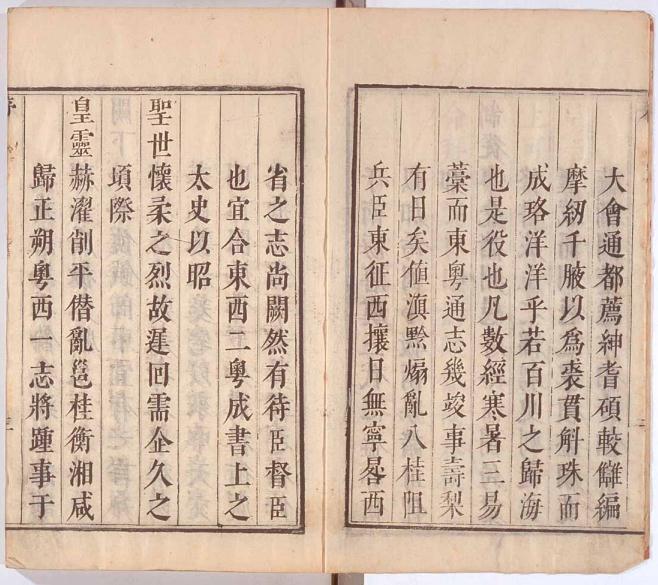 大會通都薦紳耆碩較讎編
摩紉千腋以爲裘貫斛珠而
成珞洋洋乎若百川之歸海
也是役也凡數經寒暑三易
藁而東粵通志幾竣事壽梨
有日矣值滇黔煽亂八桂阻
兵臣東征西攘日無寧晷西
省之志尚闕然有待臣督臣
也宜合東西二粵成書上之
太史以昭
聖世懷柔之烈故遲回需企久之
頃際
皇靈赫濯削平僭亂邕桂衡湘咸
歸正朔粵西一志將踵事于